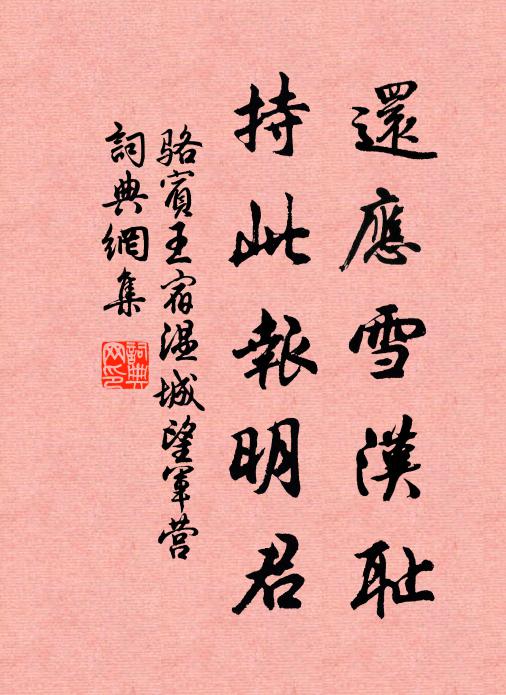 還應雪漢恥
持此報明君
骆賓王宿温城望軍营
詞典網集
詞典网印